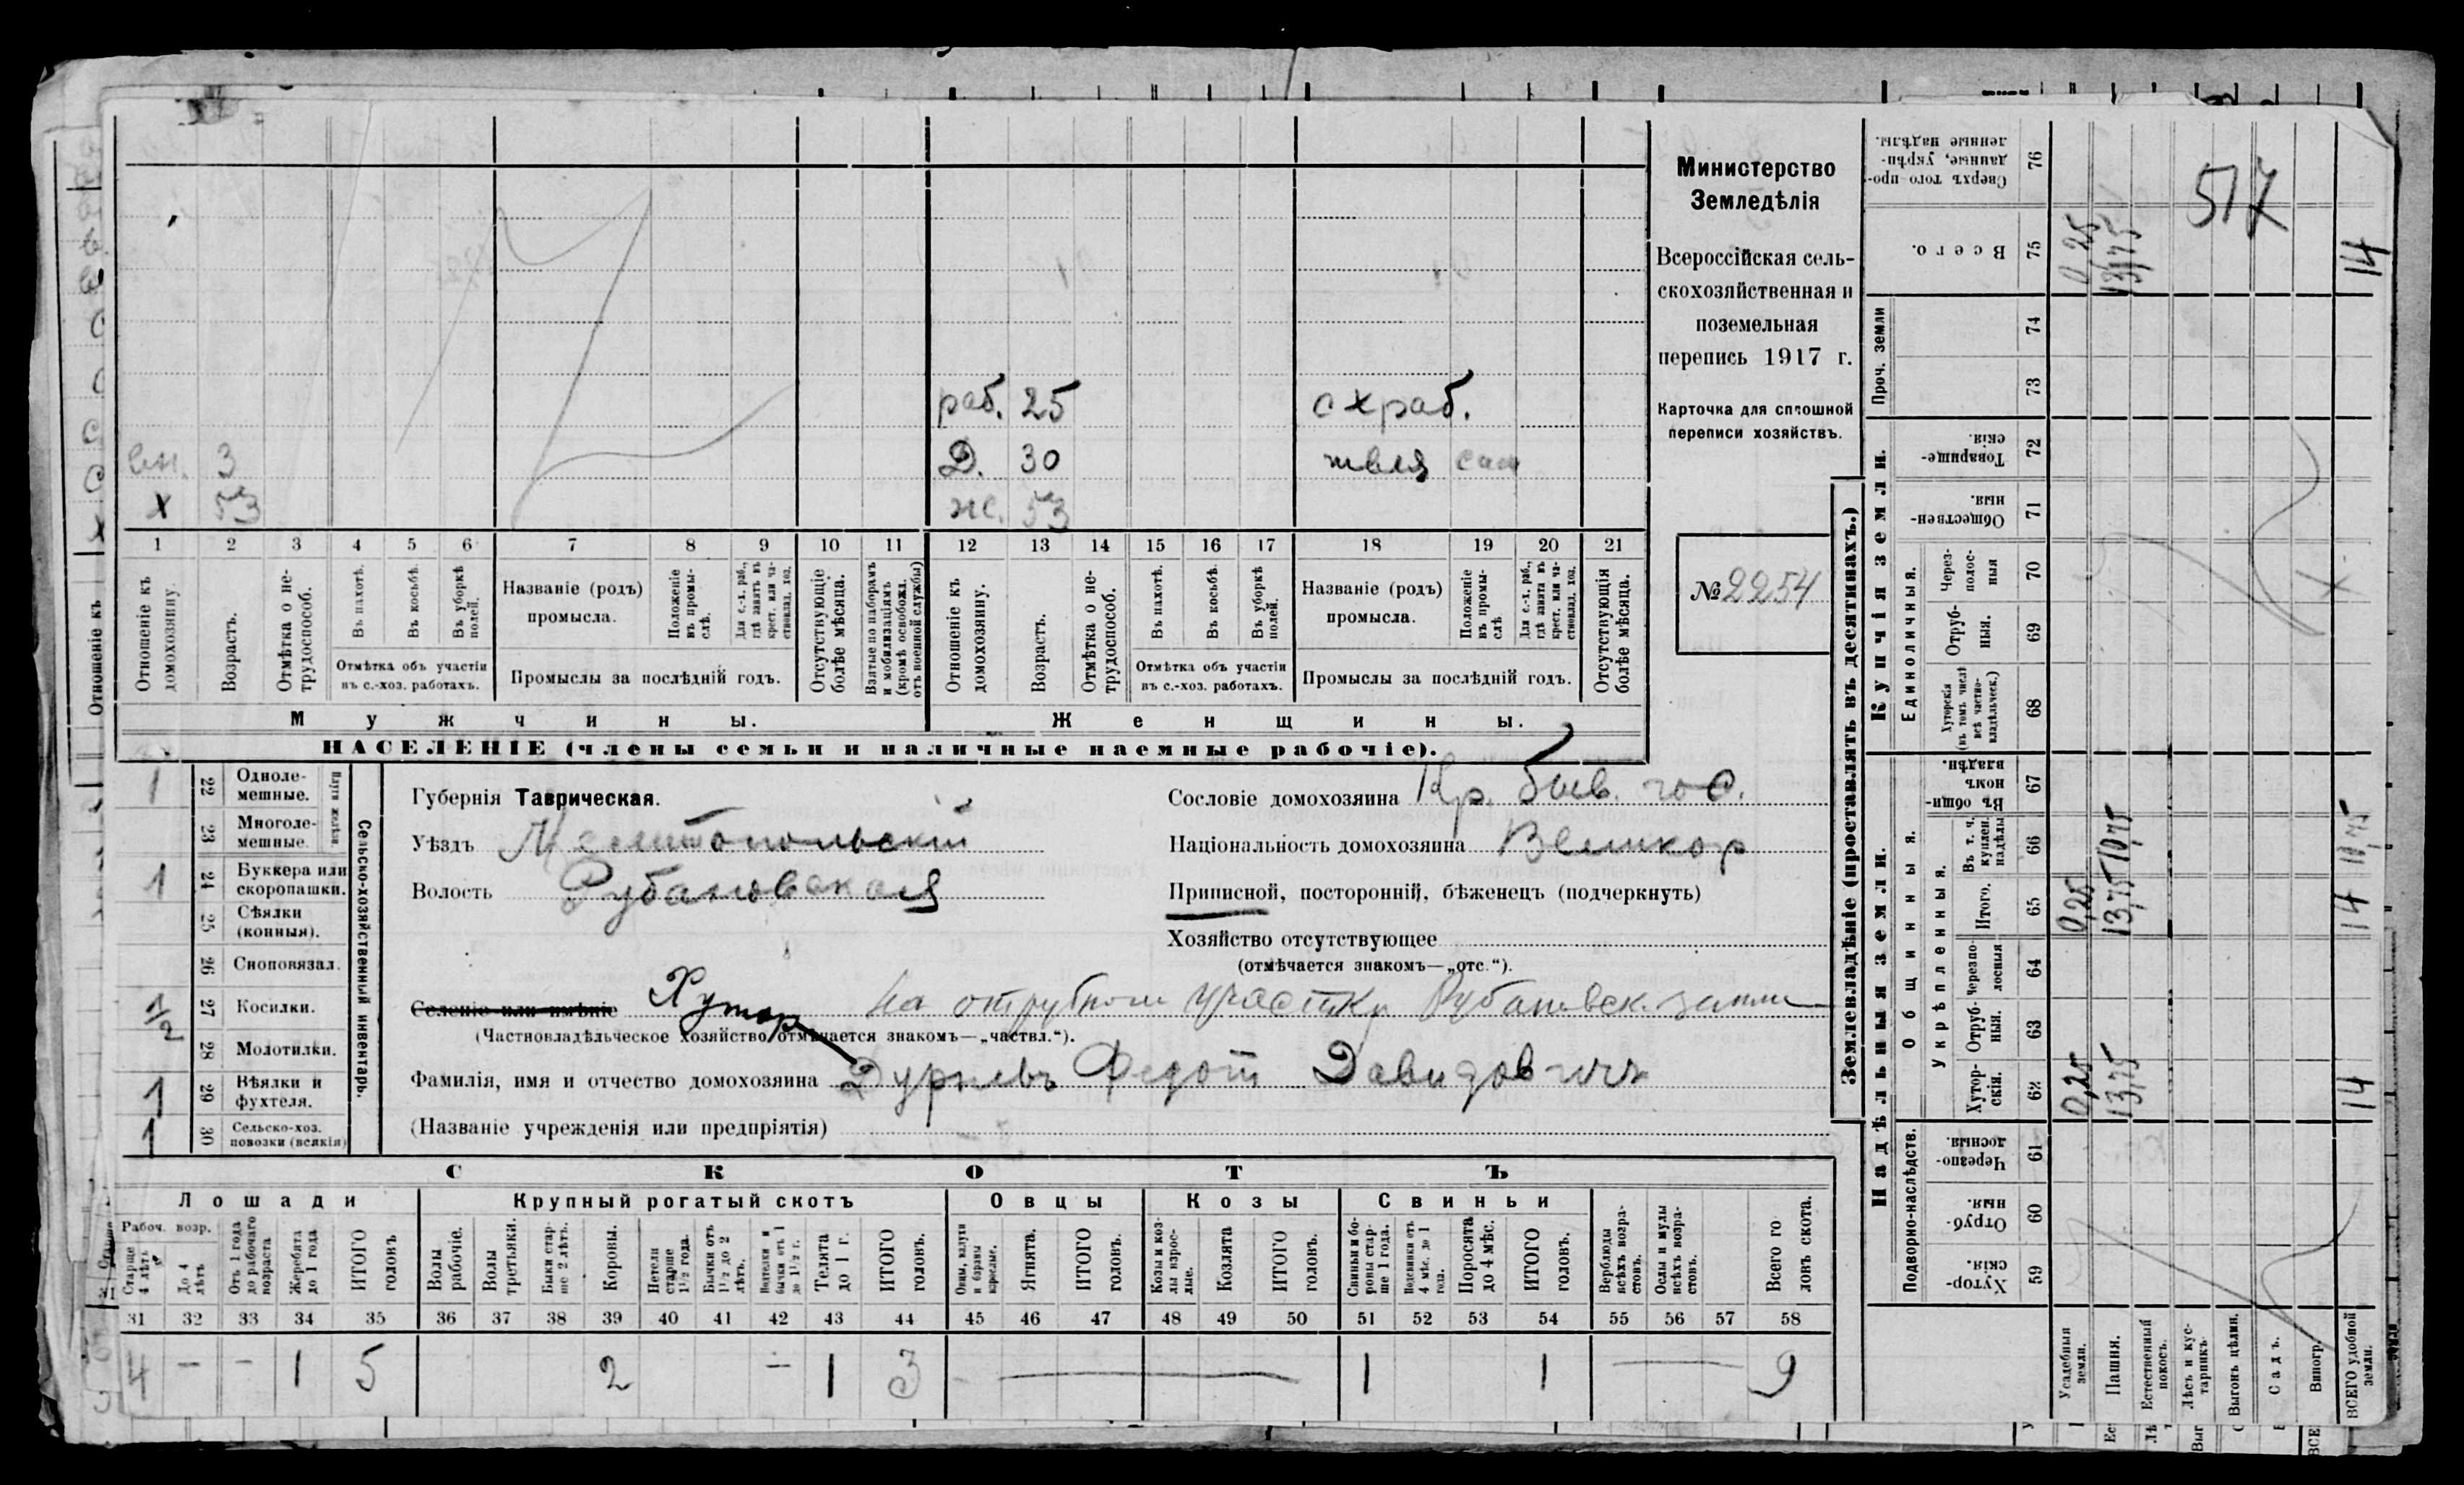 раб. 25 с х раб.
вн. 3 Д. 30 швея сам
х 53 ж. 53
1 2 3 4 5 6 7 8 9 10 11 12 13 14 15 16 17 18 19 20 21
Отношеніе къ домохозяину.
Возрастъ.
Отмѣтка о нетрудоспособ.
Въ пахотѣ.
Въ косьбѣ.
Въ уборкѣ полей.
Отмѣтка объ участіи
въ с.-хоз. работахъ.
Названіе (родъ)
промысла.
Положеніе въ промыслѣ.
Для с.-х. раб., гдѣ занятъ въ крест. или частновлад. хоз.
Промыслы за послѣдній годъ.
Отсутствующіе болѣе мѣсяца.
Взятые по наборамъ и мобилизаціямъ (кромѣ освобожд. отъ военной службы)
Отношеніе къ домохозяину.
Возрастъ.
Отмѣтка о нетрудоспособ.
Въ пахотѣ.
Въ косьбѣ.
Въ уборкѣ полей.
Отмѣтка объ участіи
въ с.-хоз. работахъ.
Названіе (родъ)
промысла.
Положеніе въ промыслѣ
Для с.-х. раб., гдѣ занята въ крест. или частновлад. хоз.
Промыслы за послѣдній годъ.
Отсутствующія болѣе мѣсяца.
Мужчины. Женщины.
НАСЕЛЕНІЕ (члены семьи и наличные наемные рабочіе).
Министерство
Земледѣлія
Всероссійская сель-
скохозяйственная и
поземельная
перепись 1917 г.
Карточка для сплошной
переписи хозяйствъ.
№ 2254
1 22 Одноле-
мешные.
23 Многоле-
мешные.
1 24 Буккера или
скоропашки.
25 Сѣялки
(конныя).
26 Сноповязал.
1/2 27 Косилки.
28 Молотилки.
1 29 Вѣялки и
фухтеля.
1 30 Сельско-хоз.
повозки (всякія)
Сельско-хозяйственный инвентарь.
Губернія Таврическая.
Уѣздъ Мелитопольскій
Волость Рубановская
Селеніе или имѣніе Хутор на отрубном участкѣ Рубановск. земли
(Частновладѣльческое хозяйство отмѣчается знакомъ—„частвл.“).
Фамилія, имя и отчество домохозяина Дурневъ Федот Давидович
(Названіе учрежденія или предпріятія)
Сословіе домохозяина Кр. быв. гос.
Національность домохозяина Великор
Приписной, посторонній, бѣженецъ (подчеркнуть)
Хозяйство отсутствующее
(отмѣчается знакомъ—„отс.“).
СКОТЪ
Лошади Крупный рогатый скотъ Овцы Козы Свиньи
Рабоч. возр.
Старше 4 лѣтъ
До 4 лѣтъ
Отъ 1 года до рабочаго возраста
Жеребята до 1 года
ИТОГО головъ
Волы рабочіе.
Волы третьяки.
Быки старше 2 лѣтъ.
Коровы.
Нетели старше 1½ года.
Бычки отъ 1½ до 2 лѣтъ.
Телята до 1 г.
ИТОГО головъ.
Овцы, валухи и бараны взрослые.
Ягнята.
ИТОГО головъ.
Козы и козлы взрослые.
Козлята
ИТОГО головъ.
Свиньи и боровы старше 1 года.
Подсвинки отъ 4 мѣс. до 1 года.
Поросята до 4 мѣс.
ИТОГО головъ.
Верблюды всѣхъ возрастовъ.
Ослы и мулы всѣхъ возрастовъ.
Всего головъ скота.
31 32 33 34 35 36 37 38 39 40 41 42 43 44 45 46 47 48 49 50 51 52 53 54 55 56 57 58
4 — — 1 5 2 — 1 3 1 1 9
Землевладѣніе (проставлять въ десятинахъ.)
Купчія земли.
Надѣльныя земли.
Сверхъ того проданные, укрѣпленные надѣлы. 76
Всего. 75 0,25 13,75 14
517
Проч. земли 74 73
Товарищескія. 72
Общественныя. 71
Единоличныя.
Черезполосныя 70
Отрубныя. 69
Хуторскія (въ томъ числѣ всѣ частновладѣльческ.) 68
Общинныя.
Въ общиномъ владѣн. 67
Укрѣпленныя.
Въ т. ч. куплен. надѣлы 66 10,75 10,75
Итого. 65 0,25 13,75 14
Черезполосныя 64
Отрубныя. 63
Хуторскія. 62 0,25 13,75 14
Подворно-наслѣдств.
Черезполосныя. 61
Отрубныя. 60
Хуторскія. 59
Усадебныя земли.
Пашня.
Естественный покосъ.
Лѣсъ и кустарникъ.
Выгонъ цѣлин.
Садъ.
Виногр.
ВСЕГО удобной земли.
Отношеніе къ